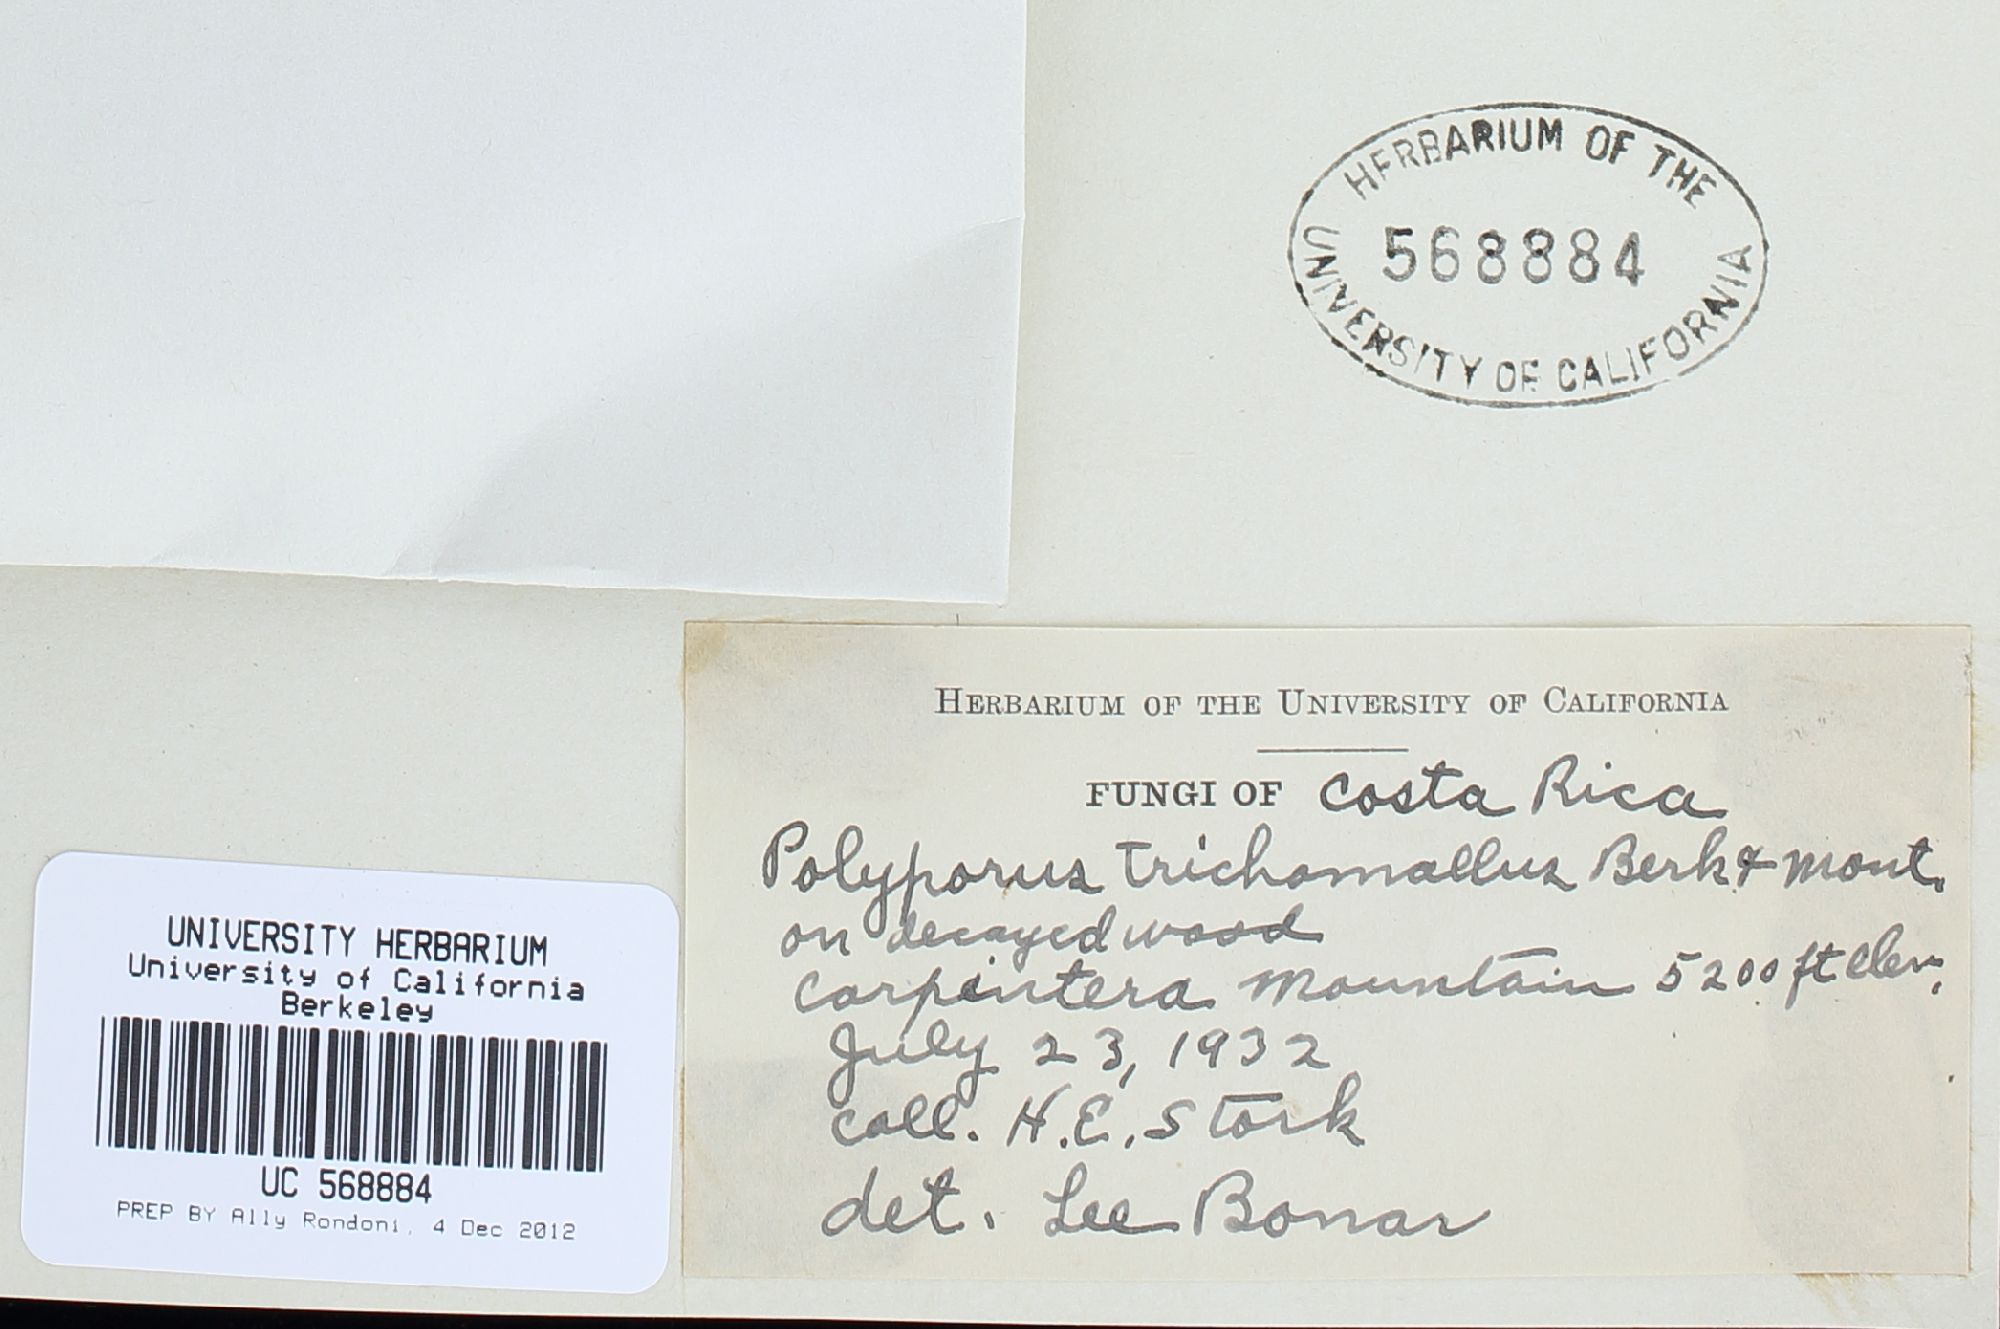 HERBARIUM OF THE
568884
UNIVERSITY OF CALIFORNIA
HERBARIUM OF THE UNIVERSITY OF CALIFORNIA
FUNGI OF Costa Rica
Polyporus trichomallus Berk & Mont.
on decayed wood
Carpintera Mountain 5200 ft elev.
July 23, 1932
coll. H.E. Stork
det. Lee Bonar
UNIVERSITY HERBARIUM
University of California
Berkeley
UC 568884
PREP BY Ally Rondoni, 4 Dec 2012